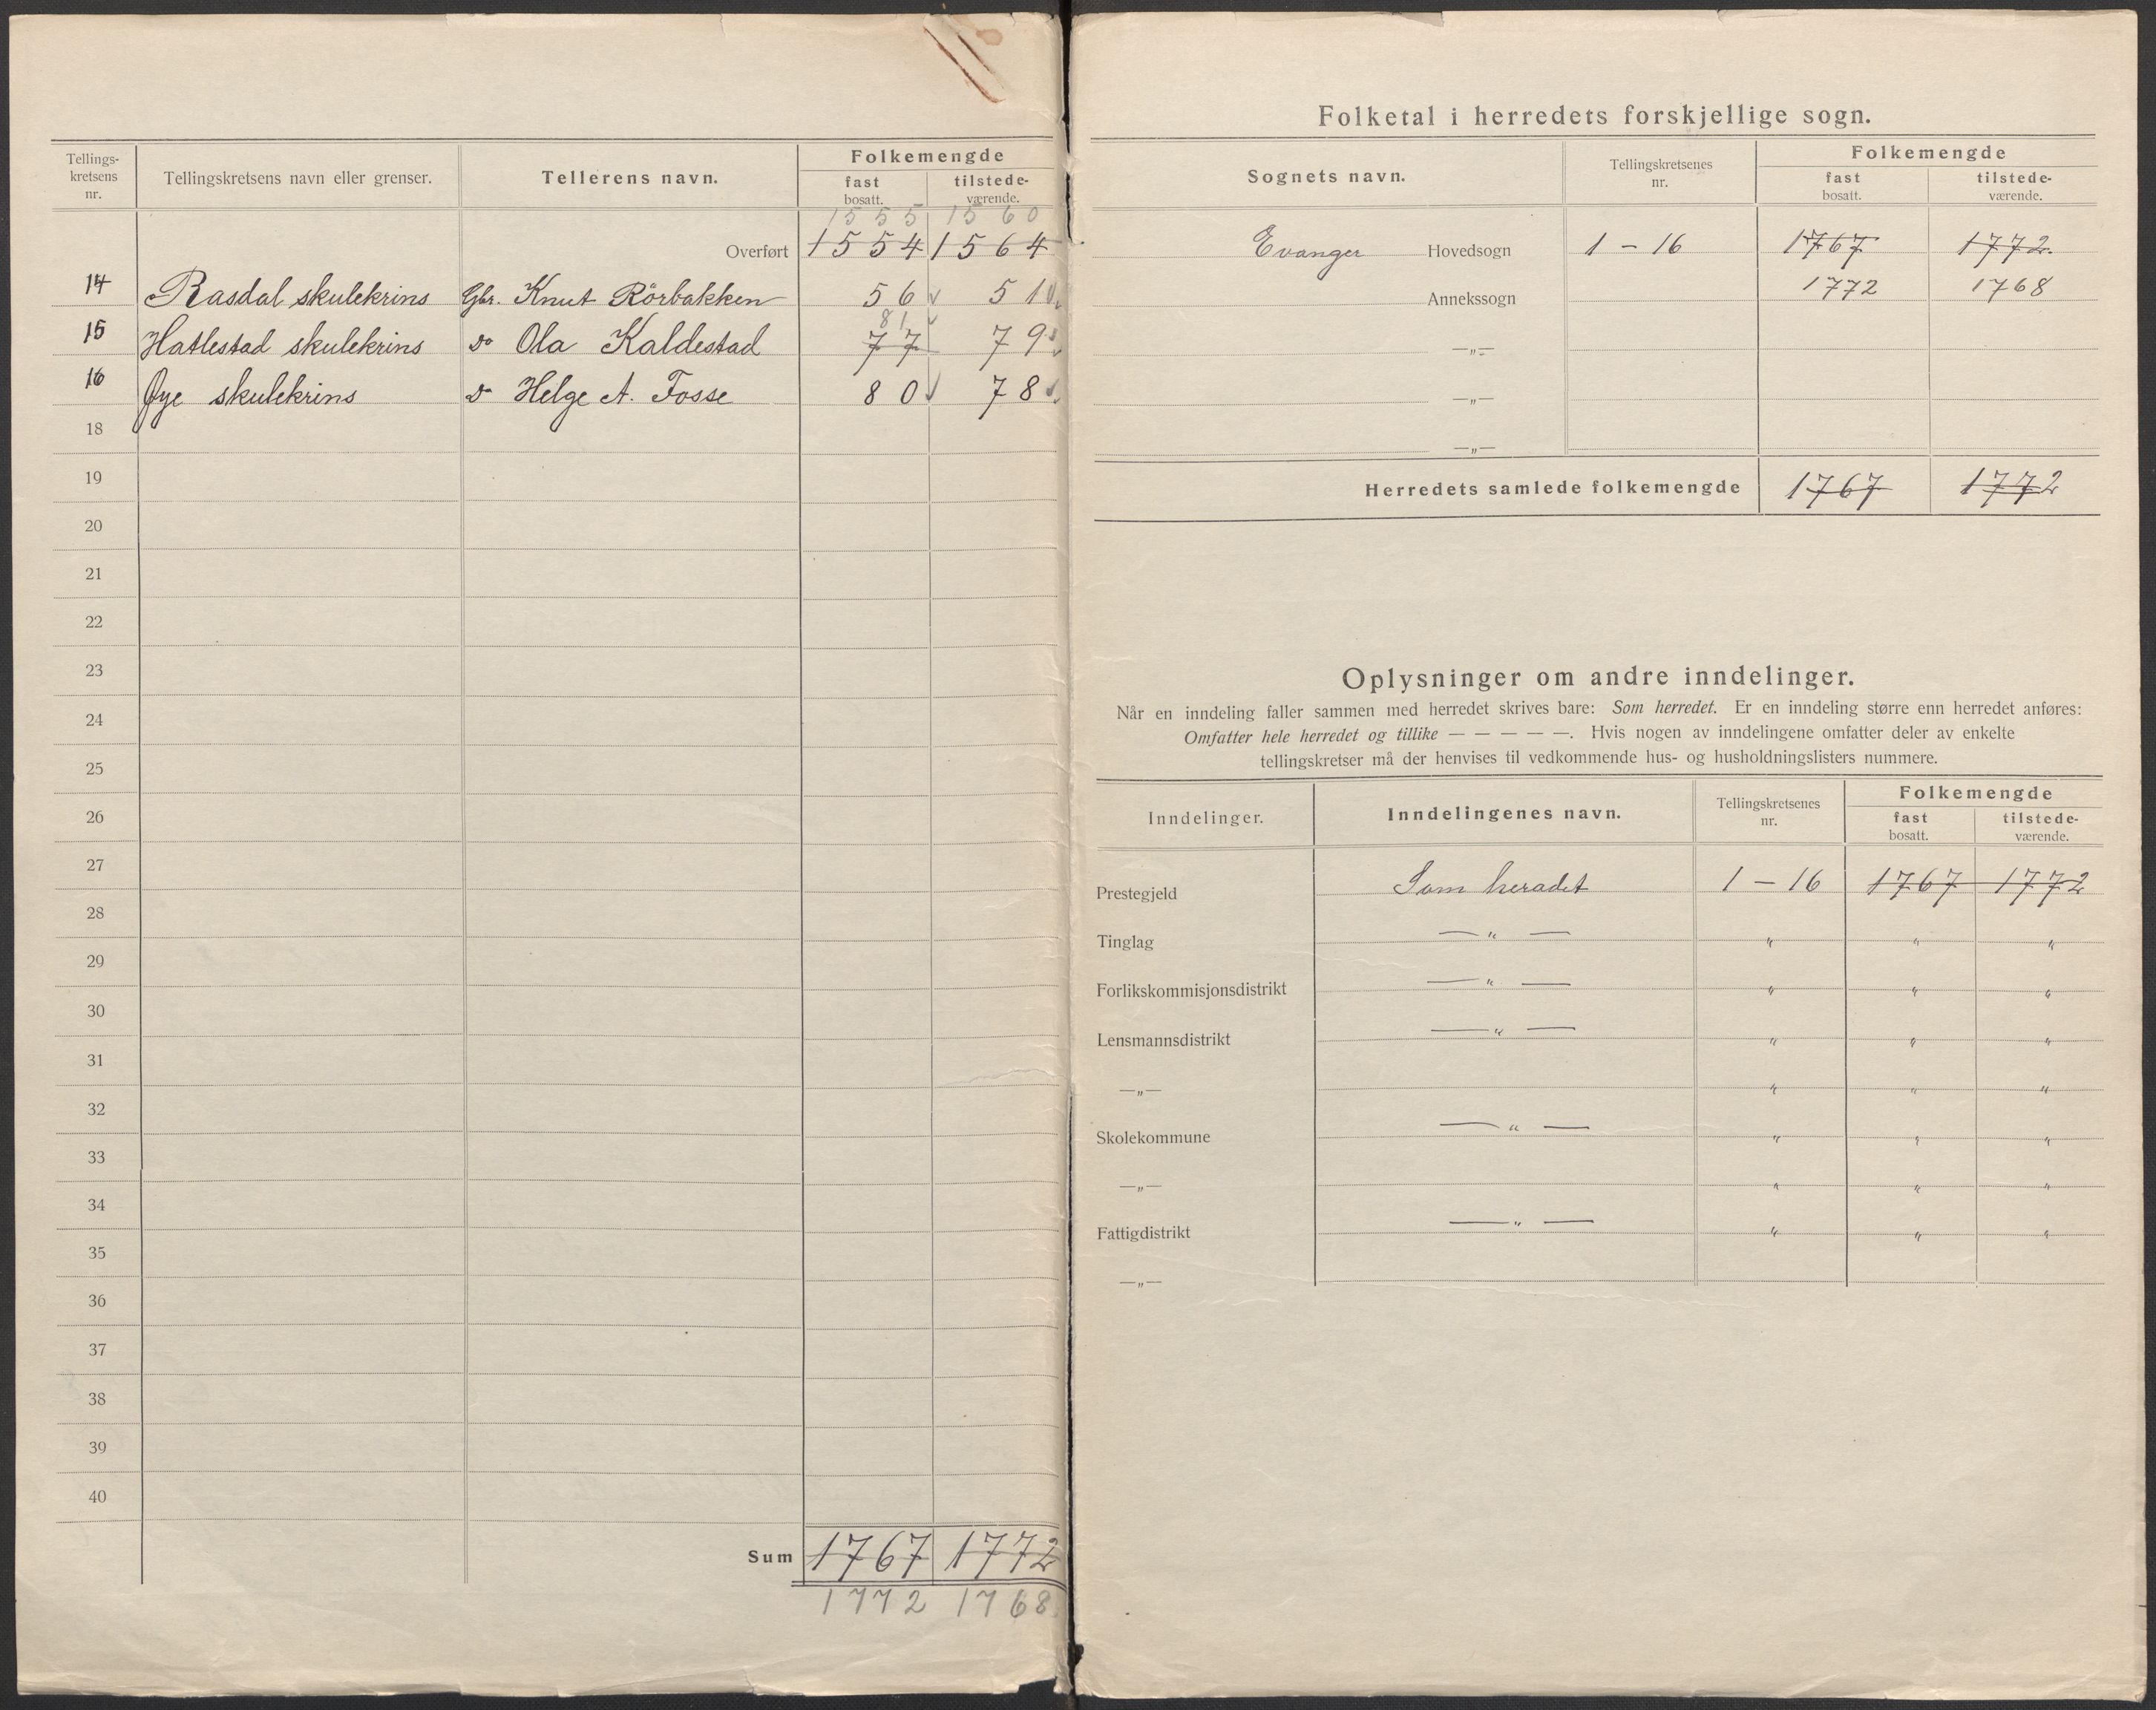 Tellings-
kretsens
nr.
Tellingskretsens navn eller grenser.
Tellerens navn.
Folkemengde
fast
bosatt.
tilstede-
værende.
1555 1560
Overført 1554 1564
14 Rasdal skulekrins Gbr. Knut Rörbakken 56 51
81
15 Hatlestad skulekrins do Ola Kaldestad 77 79
16 Øye skulekrins do Helge A. Fosse 80 78
18
19
20
21
22
23
24
25
26
27
28
29
30
31
32
33
34
35
36
37
38
39
40
Sum 1767 1772
1772 1768
Folketal i herredets forskjellige sogn.
Sognets navn.
Tellingskretsenes
nr.
Folkemengde
fast
bosatt.
tilstede-
værende.
Evanger Hovedsogn 1 - 16 1767 1772.
Annekssogn 1772 1768
—„—
—„—
—„—
Herredets samlede folkemengde 1767 1772
Oplysninger om andre inndelinger.
Når en inndeling faller sammen med herredet skrives bare: Som herredet. Er en inndeling større enn herredet anføres:
Omfatter hele herredet og tillike — — — — —. Hvis nogen av inndelingene omfatter deler av enkelte
tellingskretser må der henvises til vedkommende hus- og husholdningslisters nummere.
Inndelinger.
Inndelingenes navn.
Tellingskretsenes
nr.
Folkemengde
fast
bosatt.
tilstede-
værende.
Prestegjeld Som heradet 1 - 16 1767 1772
Tinglag — " — " " "
Forlikskommisjonsdistrikt — " — " " "
Lensmannsdistrikt — " — " " "
—„— " " "
Skolekommune — " — " " "
—„— " " "
Fattigdistrikt — " — " " "
—„—